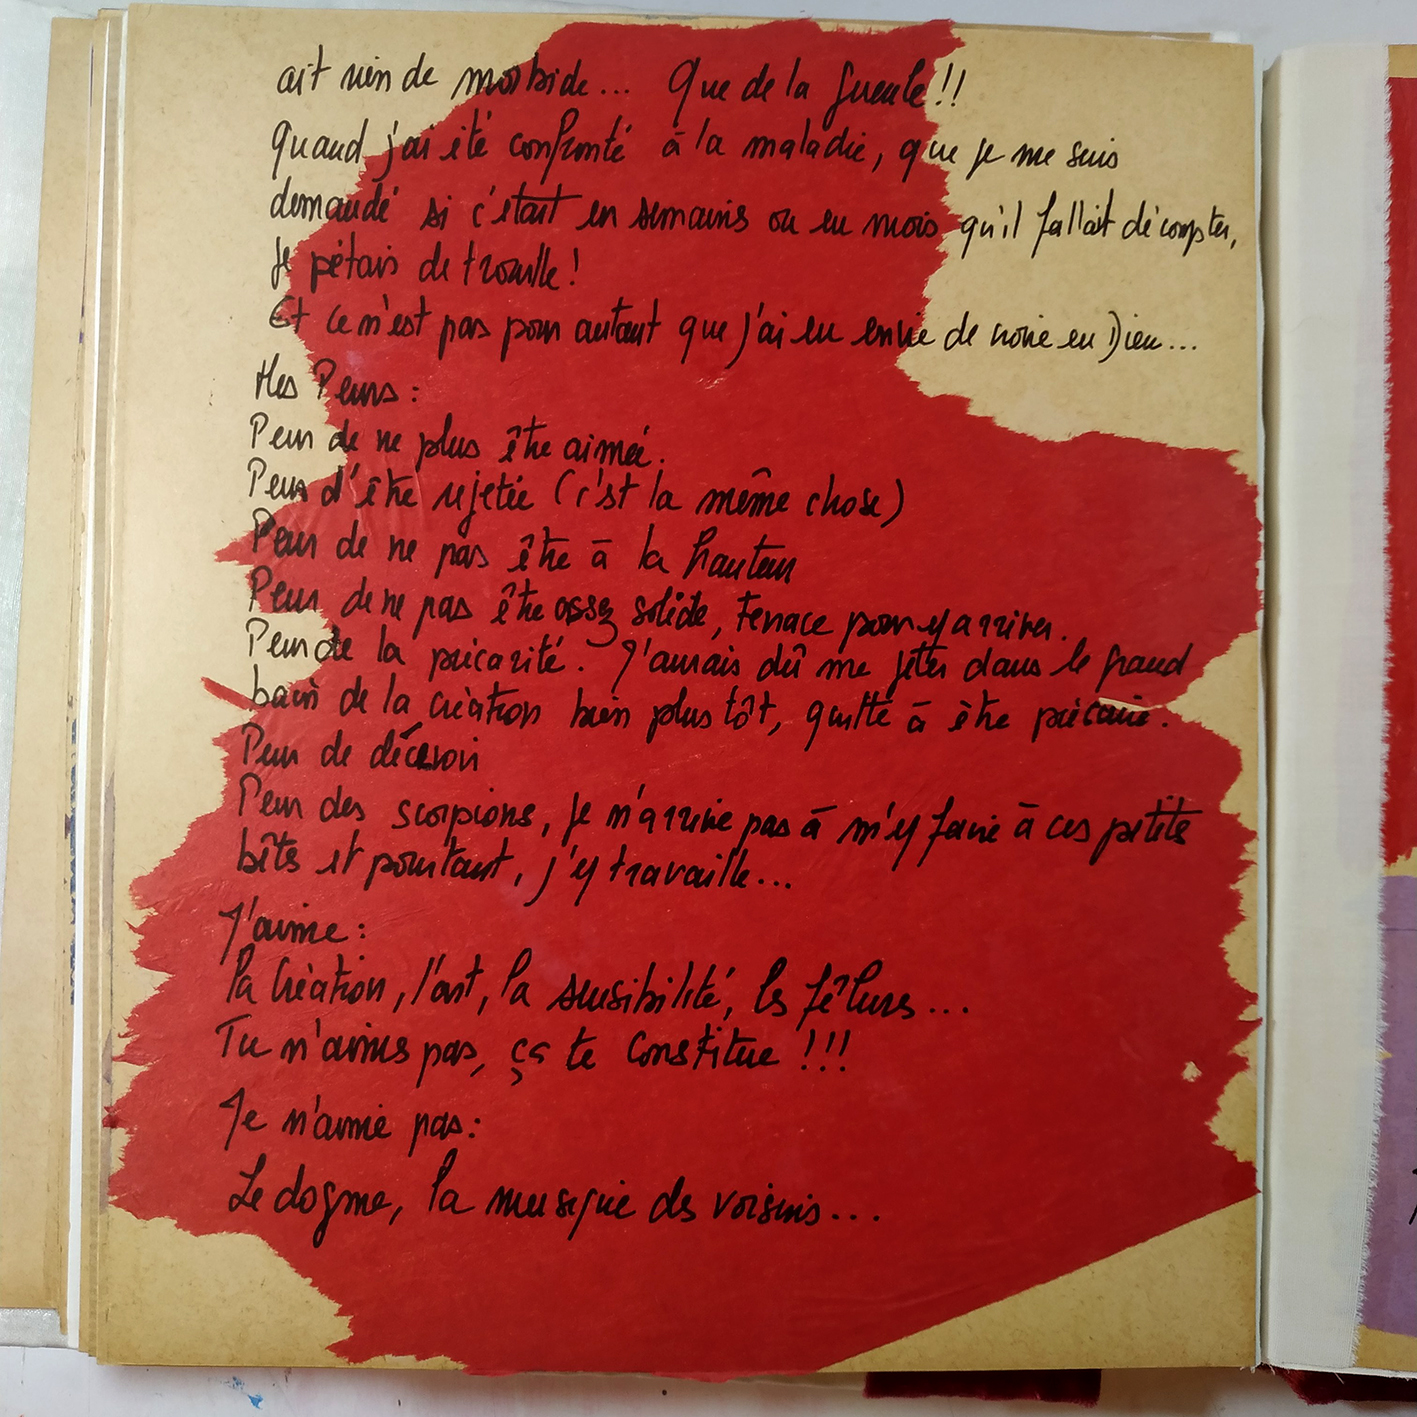 ait rien de morbide... Que de la gueule!!
Quand j'ai été confronté à la maladie, que je me suis
demandé si c'était en semaines ou en mois qu'il fallait décompter,
je pétais de trouille!
Et ce n'est pas pour autant que j'ai eu envie de croire en Dieu...
Mes Peurs:
Peur de ne plus être aimée.
Peur d'être rejetée (c'est la même chose)
Peur de ne pas être à la hauteur
Peur de ne pas être assez solide, tenace pour y arriver.
Peur de la précarité. J'aurais dû me jeter dans le grand
bain de la création bien plus tôt, quitte à être précaire.
Peur de décevoir
Peur des scorpions, je n'arrive pas à m'y faire à ces petites
bêtes et pourtant, j'y travaille...
J'aime:
la Création, l'art, la sensibilité, les fêlures...
Tu n'aimes pas, ça te constitue!!!
Je n'aime pas:
Le dogme, la musique des voisins...